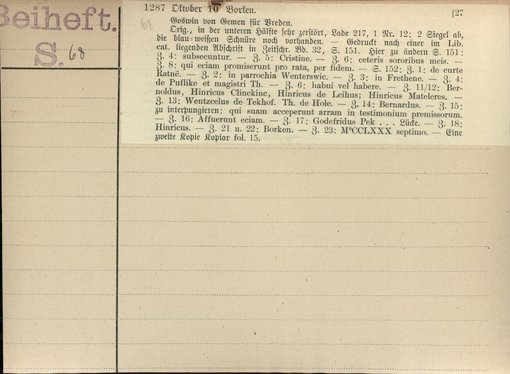 Beiheft.
S. 68
1287 Oktober 10 Borken. [27
Goswin von Gemen für Breden.
Orig., in der unteren Hälfte sehr zerstört, Lade 217, 1 Nr. 12; 2 Siegel ab,
die blau-weißen Schnüre noch vorhanden. — Gedruckt nach einer im Lib.
cat. liegenden Abschrift in Zeitschr. Bd. 32, S. 151. Hier zu ändern S. 151:
Z. 4: subsecuntur. — Z. 5: Cristine. — Z. 6: ceteris sororibus meis. —
Z. 8: qui eciam promiserunt pro rata, per fidem. — S. 152: Z. 1; de curte
Ratnë. — Z. 2: in parrochia Wenterswic. — Z. 3; in Frethene. — Z. 4:
de Puflike et magistri Th. — Z. 6: habui vel habere. — Z. 11/12: Ber-
noldus, Hinricus Clinckine, Hinricus de Leihus; Hinricus Matcleres. —
Z. 13; Wentzcelus de Tekhof. Th. de Hole. — Z. 14; Bernardus. — Z. 15;
zu interpungieren; qui suam acceperunt arram in testimonium premissorum.
— Z. 16; Affuerunt eciam. — Z. 17; Godefridus Pek . . . Lücke. — Z. 18;
Hinricus. — Z. 21 u. 22; Borken. — Z. 23; M°CCLXXX septimo. — Eine
zweite Kopie Kopiar fol. 15.